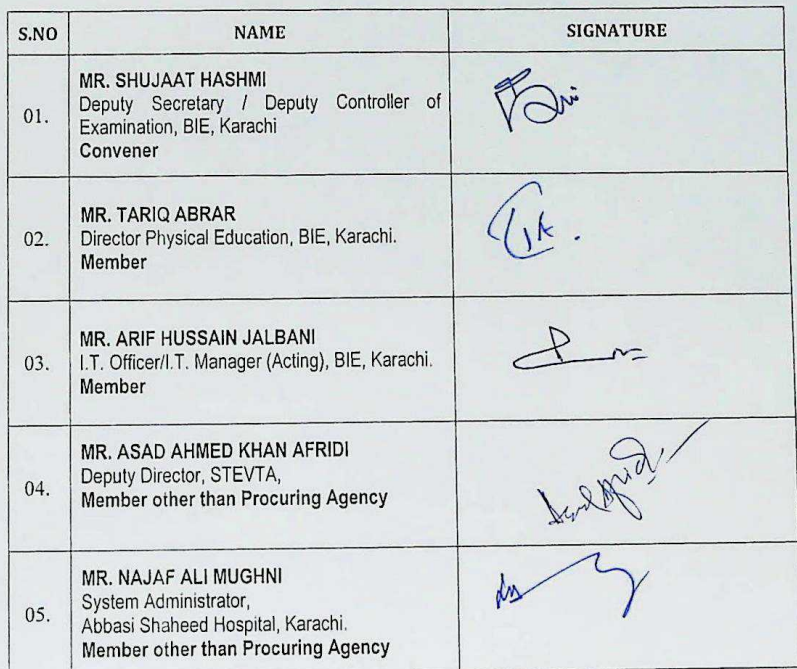 S.NO NAME SIGNATURE
01. MR. SHUJAAT HASHMI
Deputy Secretary / Deputy Controller of
Examination, BIE, Karachi
Convener
02. MR. TARIQ ABRAR
Director Physical Education, BIE, Karachi.
Member
03. MR. ARIF HUSSAIN JALBANI
I.T. Officer/I.T. Manager (Acting), BIE, Karachi.
Member
04. MR. ASAD AHMED KHAN AFRIDI
Deputy Director, STEVTA,
Member other than Procuring Agency
05. MR. NAJAF ALI MUGHNI
System Administrator,
Abbasi Shaheed Hospital, Karachi.
Member other than Procuring Agency